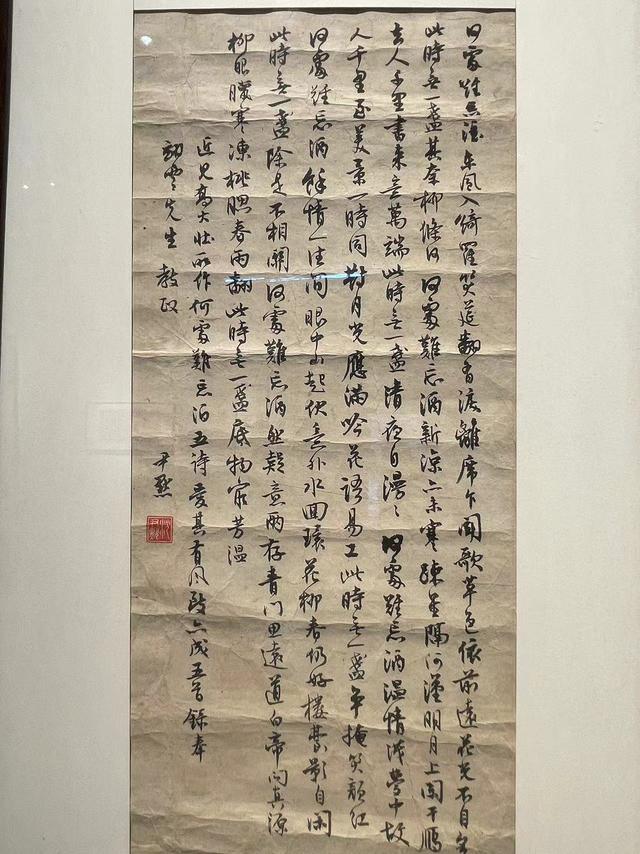 何處難忘酒東風入綺羅笑筵翻香渡離席乍聞歌草色依前遠花光不自
此時無一盞其奈柳條何何處難忘酒新涼亦未寒疎星隔河漢明月上闌干鴈
去人千里書來意萬端此時無一盞清夜自漫漫何處難忘酒溫情淺夢中故
人千里至美景一時同對月光應滿吟花語易工此時無一盞羊掩笑顏紅
何處難忘酒餘情一往間眼中山起伏意外水回環花柳春仍好樓臺影自閑
此時無一盞除是不相關何處難忘酒然疑意兩存青門思遠道白帝問真源
柳眼朦寒凍桃腮春雨翻此時無一盞底物寂芳溫
近見高大壯所作何處難忘酒五詩愛其有風致亦成五首錄奉
先生教政
尹默